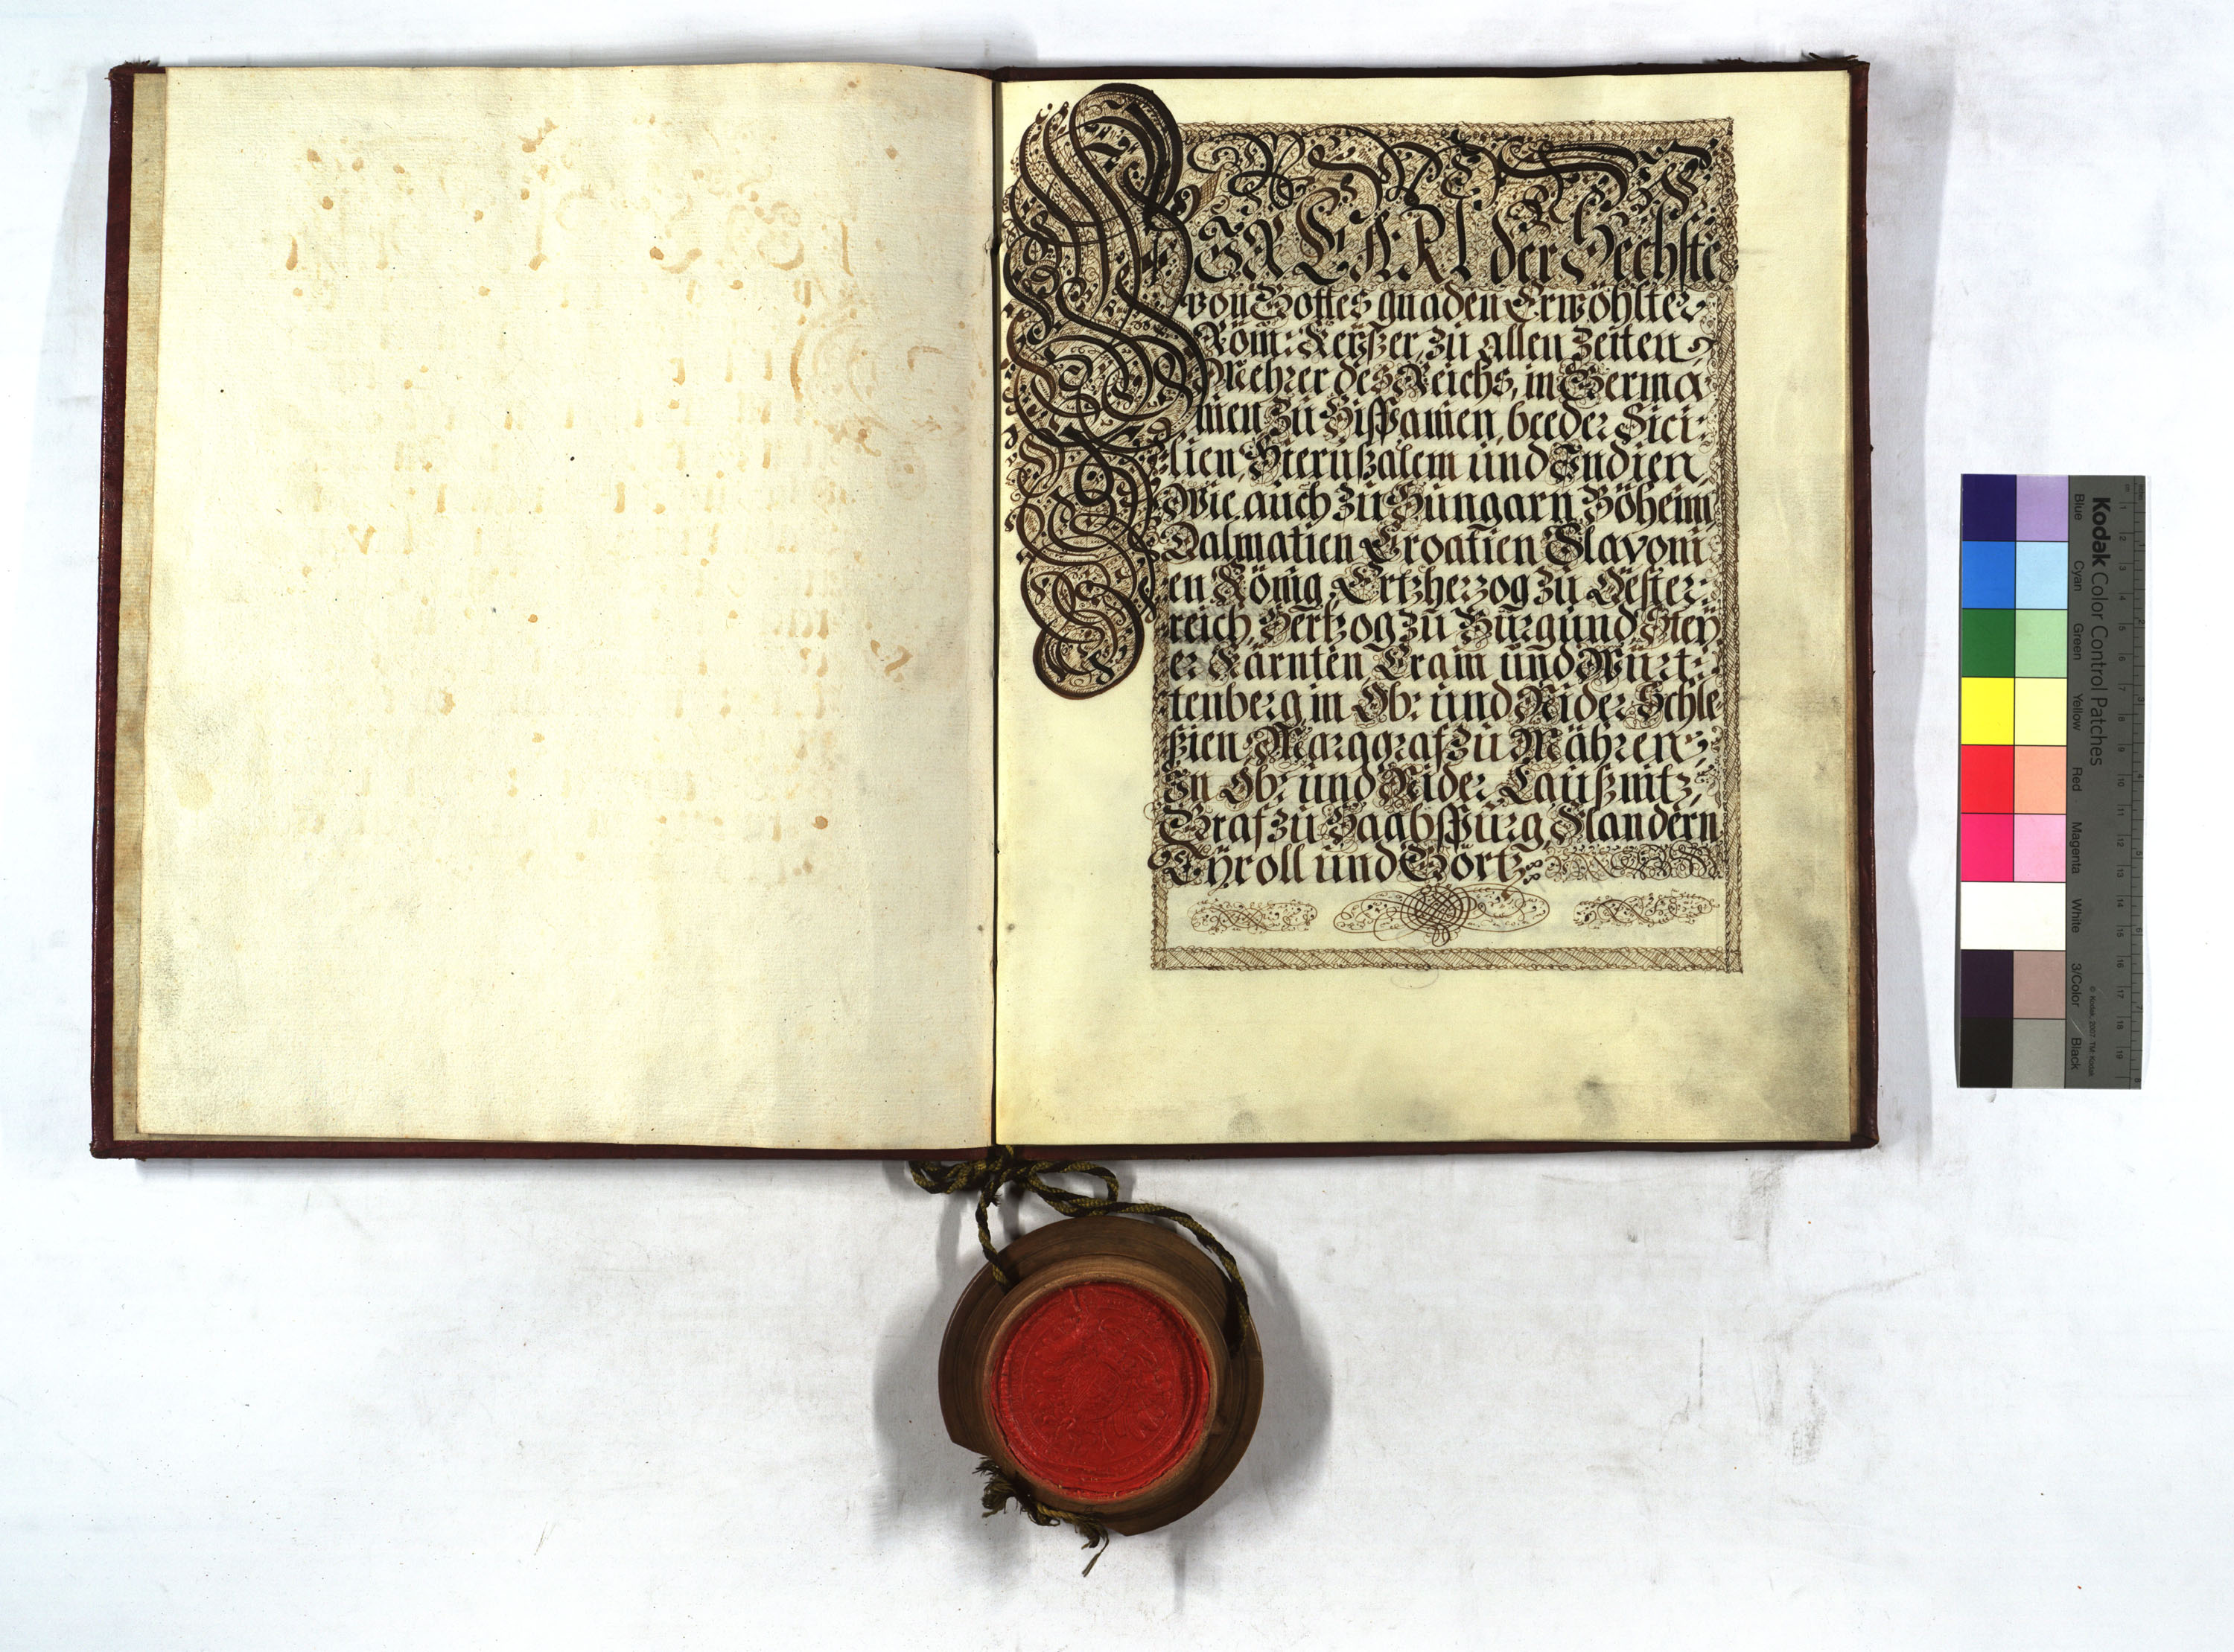 WJR CARL der Sechste
von Gottes gnaden Erwöhlter
Röm: Keÿßer, zu allen Zeiten
Mehrer des Reichs, in Germa-
nien, zu Hispanien, beeder Sici-
lien, Hierußalem und Indien,
Wie auch zu Hungarn, Böheim,
Dalmatien, Croatien, Slavoni-
en König, Ertzherzog zu Oester-
reich, Hertzog zu Burgund, Steÿ-
er, Kärnten, Crain und Würt-
tenberg, in Ob: und Nider Schle-
ßien, Marggraf zu Mähren,
In Ob: und Nider Laußnitz,
Graf zu Haabspurg, Flandern,
Tÿroll und Görtz.
Kodak Color Control Patches
Blue Cyan Green Yellow Red Magenta White 3/Color Black
© Kodak, 2007 TM: Kodak